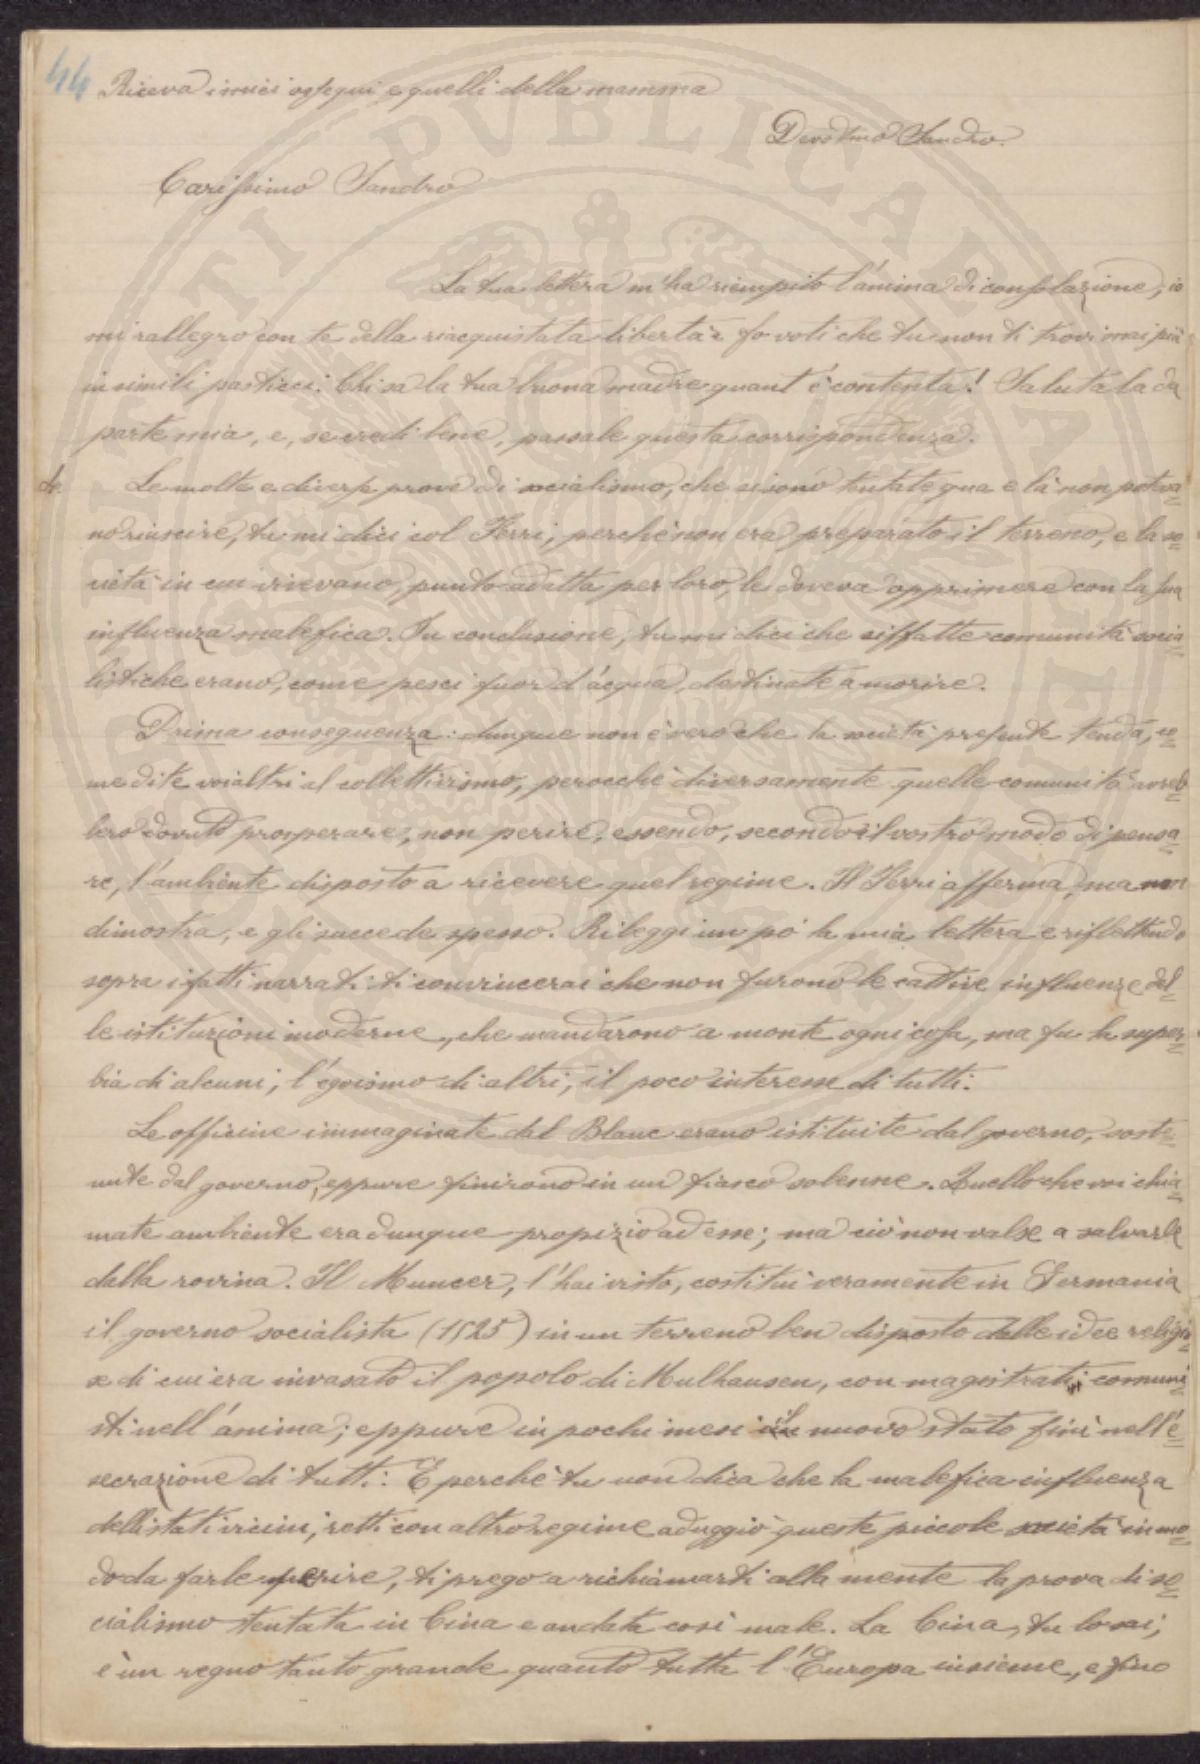 44 Riceva i miei ossequi e quelli della mamma
Devotmo Sandro.
Carissimo Sandro
La tua lettera m'ha riempito l'anima di consolazione; io
mi rallegro con te della riacquistata libertà e fo voti che tu non ti trovi mai più
in simili pasticci. Chi sa la tua buona madre quant'è contenta! Salutala da
parte mia, e, se credi bene, passale questa corrispondenza.
Le molte e diverse prove di socialismo, che si sono tentate qua e là non poteva=
no riuscire, tu mi dici col Ferri, perchè non era preparato il terreno, e la so=
cietà in cui vivevano, punto adatta per loro, le doveva opprimere con la sua
influenza malefica. In conclusione, tu mi dici che siffatte comunità socia=
listiche erano, come pesci fuor d'acqua, destinate a morire.
Prima conseguenza: dunque non è vero che la società presente tenda, co=
me dite voialtri al collettivismo, perocchè diversamente quelle comunità avreb=
bero dovuto prosperare, non perire, essendo, secondo il vostro modo di pensa=
re, l'ambiente disposto a ricevere quel regime. Il Ferri afferma, ma non
dimostra, e gli succede spesso. Rileggi un pò la mia lettera e riflettendo
sopra i fatti narrati ti convincerai che non furono le cattive influenze del=
le istituzioni moderne, che mandarono a monte ogni cosa, ma fu la super=
bia di alcuni, l'egoismo di altri, il poco interesse di tutti.
Le officine immaginate dal Blanc erano istituite dal governo, soste=
nute dal governo, eppure finirono in un fiasco solenne. Quello che voi chia=
mate ambiente era dunque propizio ad esse; ma ciò non valse a salvarle
dalla rovina. Il Muncer, l'hai visto, costituì veramente in Germania
il governo socialista (1525) in un terreno ben disposto dalle idee religio=
se di cui era invasato il popolo di Mulhausen, con magistrati comuni=
sti nell'anima; eppure in pochi mesi il nuovo stato finì nell'e=
secrazione di tutti. E perchè tu non dica che la malefica influenza
delli stati vicini, retti con altro regime aduggiò queste piccole società in mo=
do da farle perire, ti prego a richiamarti alla mente la prova di so=
cialismo tentata in Cina e andata così male. La Cina, tu lo sai,
è un regno tanto grande quanto tutta l'Europa insieme, e fino